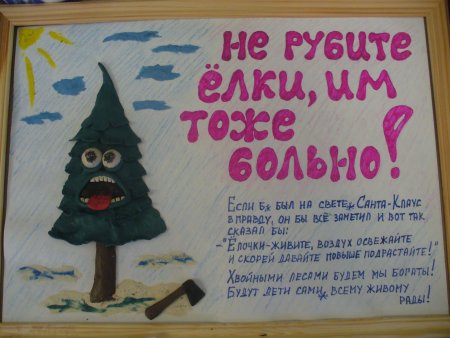 Не рубите
ёлки, им
тоже
больно!
Если б был на свете Санта-Клаус
вправду, он бы всё заметил и вот так
сказал бы:
-"Ёлочки-живите, воздух освежайте
и скорей давайте повыше подрастайте!"
Хвойными лесами будем мы богаты!
Будут дети сами всему живому
рады!